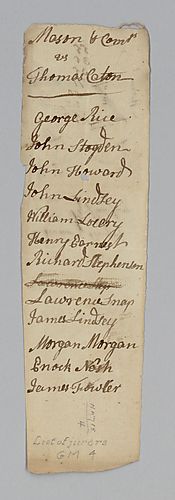 Mason & Comps
vs
Thomas Caton
George Rice
John Stogden
John Howard
John Lindsey
William Lowry
Henry Earnest
Richard Stephenson
Lawrence Snap
James Lindsey
Morgan Morgan
Enock Nosh
James Fowler
List of jurors
GM 4